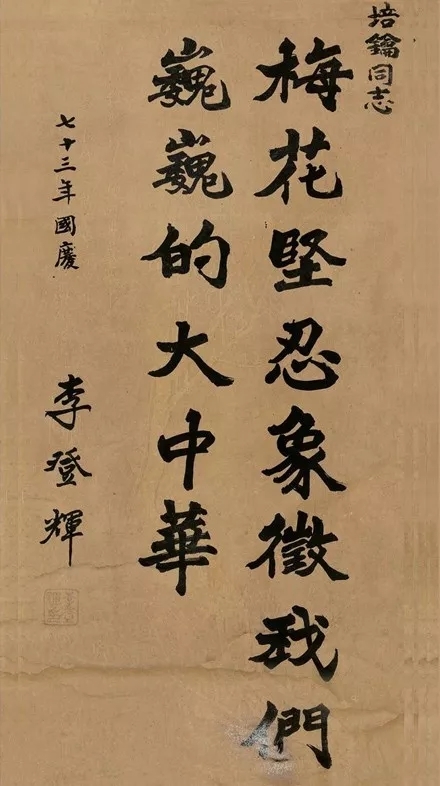 培鑰同志
梅花堅忍象徵我們
巍巍的大中華
七十三年國慶
李登輝